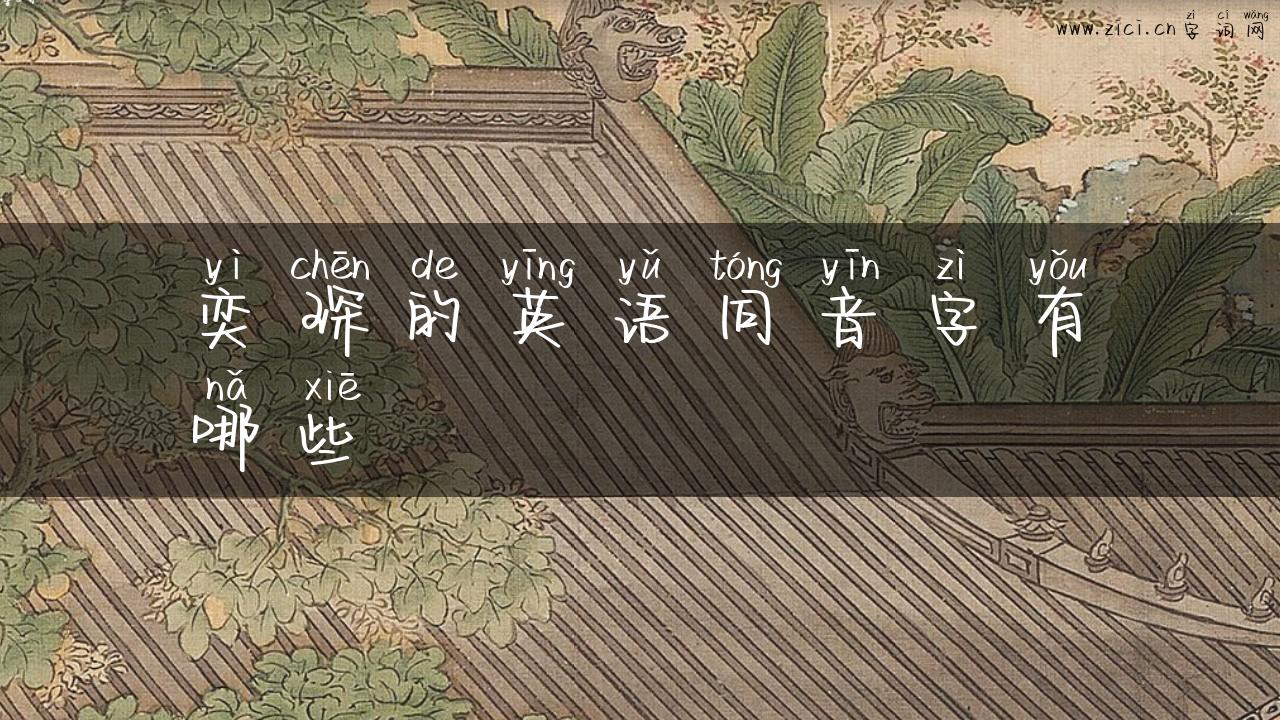 zì cí wǎng
www.zici.cn 字词网
yì chēn de yīng yǔ tóng yīn zì yǒu
奕琛的英语同音字有
nǎ xiē
哪些